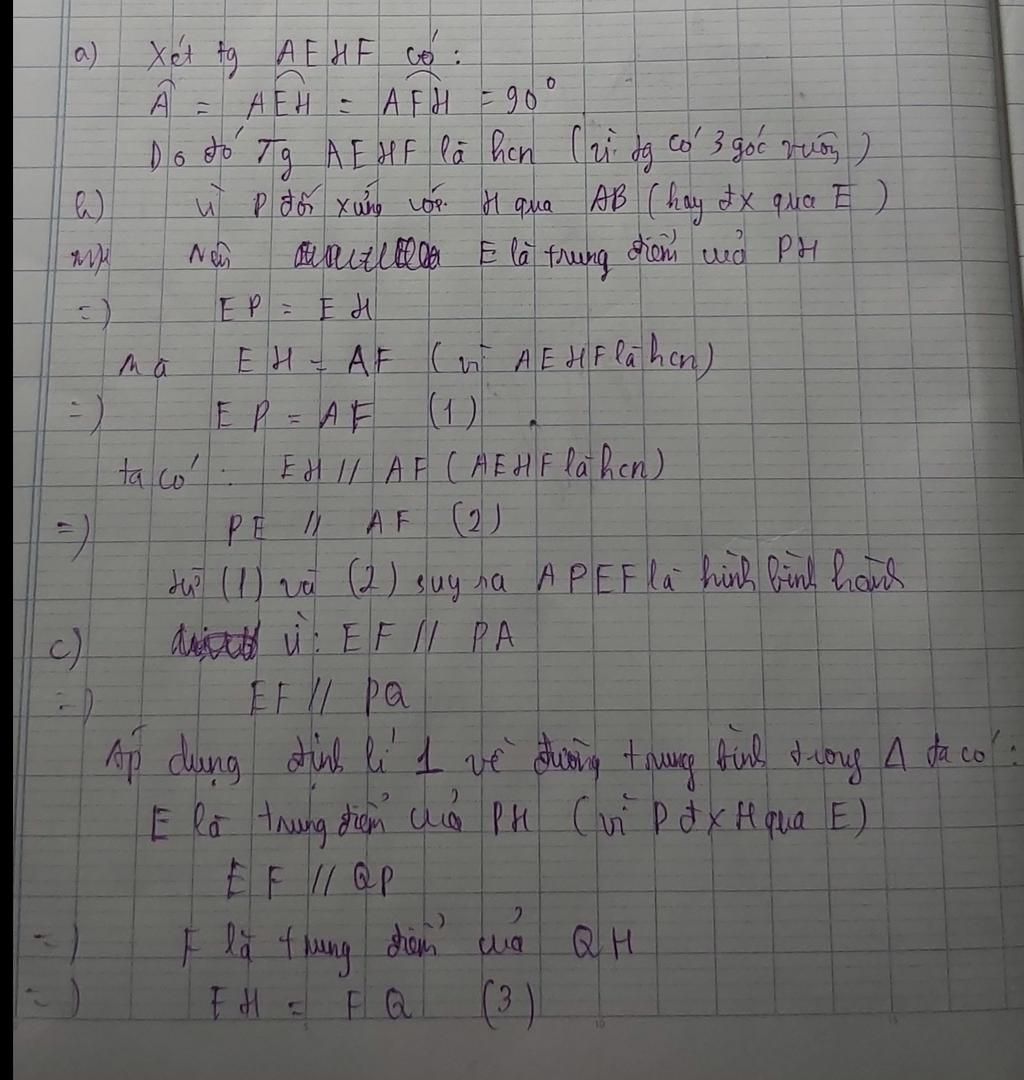 a) Xét tg AEHF có:
Â = AEH = AFH = 90°
Do đó Tg AEHF là hcn (vì tg có 3 góc vuông)
b) Vì P đối xứng với H qua AB (hay đx qua E)
Nên E là trung điểm của PH
=) EP = EH
Mà EH = AF (vì AEHF là hcn)
=) EP = AF (1)
ta có: EH // AF (AEHF là hcn)
=) PE // AF (2)
từ (1) và (2) suy ra APEF là hình bình hành
c) Vì: EF // PA
=) EF // PQ
Áp dụng định lí 1 về đường trung bình trong Δ ta có:
E là trung điểm của PH (vì P đx H qua E)
EF // QP
=) F là trung điểm của QH
=) FH = FQ (3)